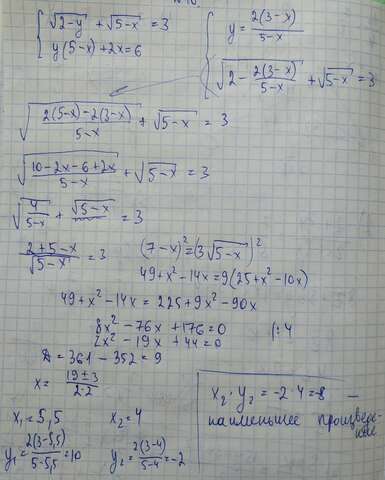 √(2-y) + √(5-x) = 3
y(5-x)+2x=6
y = 2(3-x)/(5-x)
√(2 - 2(3-x)/(5-x)) + √(5-x) = 3
√((2(5-x)-2(3-x))/(5-x)) + √(5-x) = 3
√((10-2x-6+2x)/(5-x)) + √(5-x) = 3
√(4/(5-x)) + √(5-x) = 3
(2+5-x)/√(5-x) = 3
(7-x)² = (3√(5-x))²
49+x²-14x = 9(25+x²-10x)
49+x²-14x = 225+9x²-90x
8x² - 76x + 176 = 0 |:4
2x² - 19x + 44 = 0
D = 361 - 352 = 9
x = (19±3)/(2·2)
x₁ = 5,5 x₂ = 4
y₁ = 2(3-5,5)/(5-5,5) = 10 y₂ = 2(3-4)/(5-4) = -2
x₂·y₂ = -2·4 = -8 —
наименьшее произве-